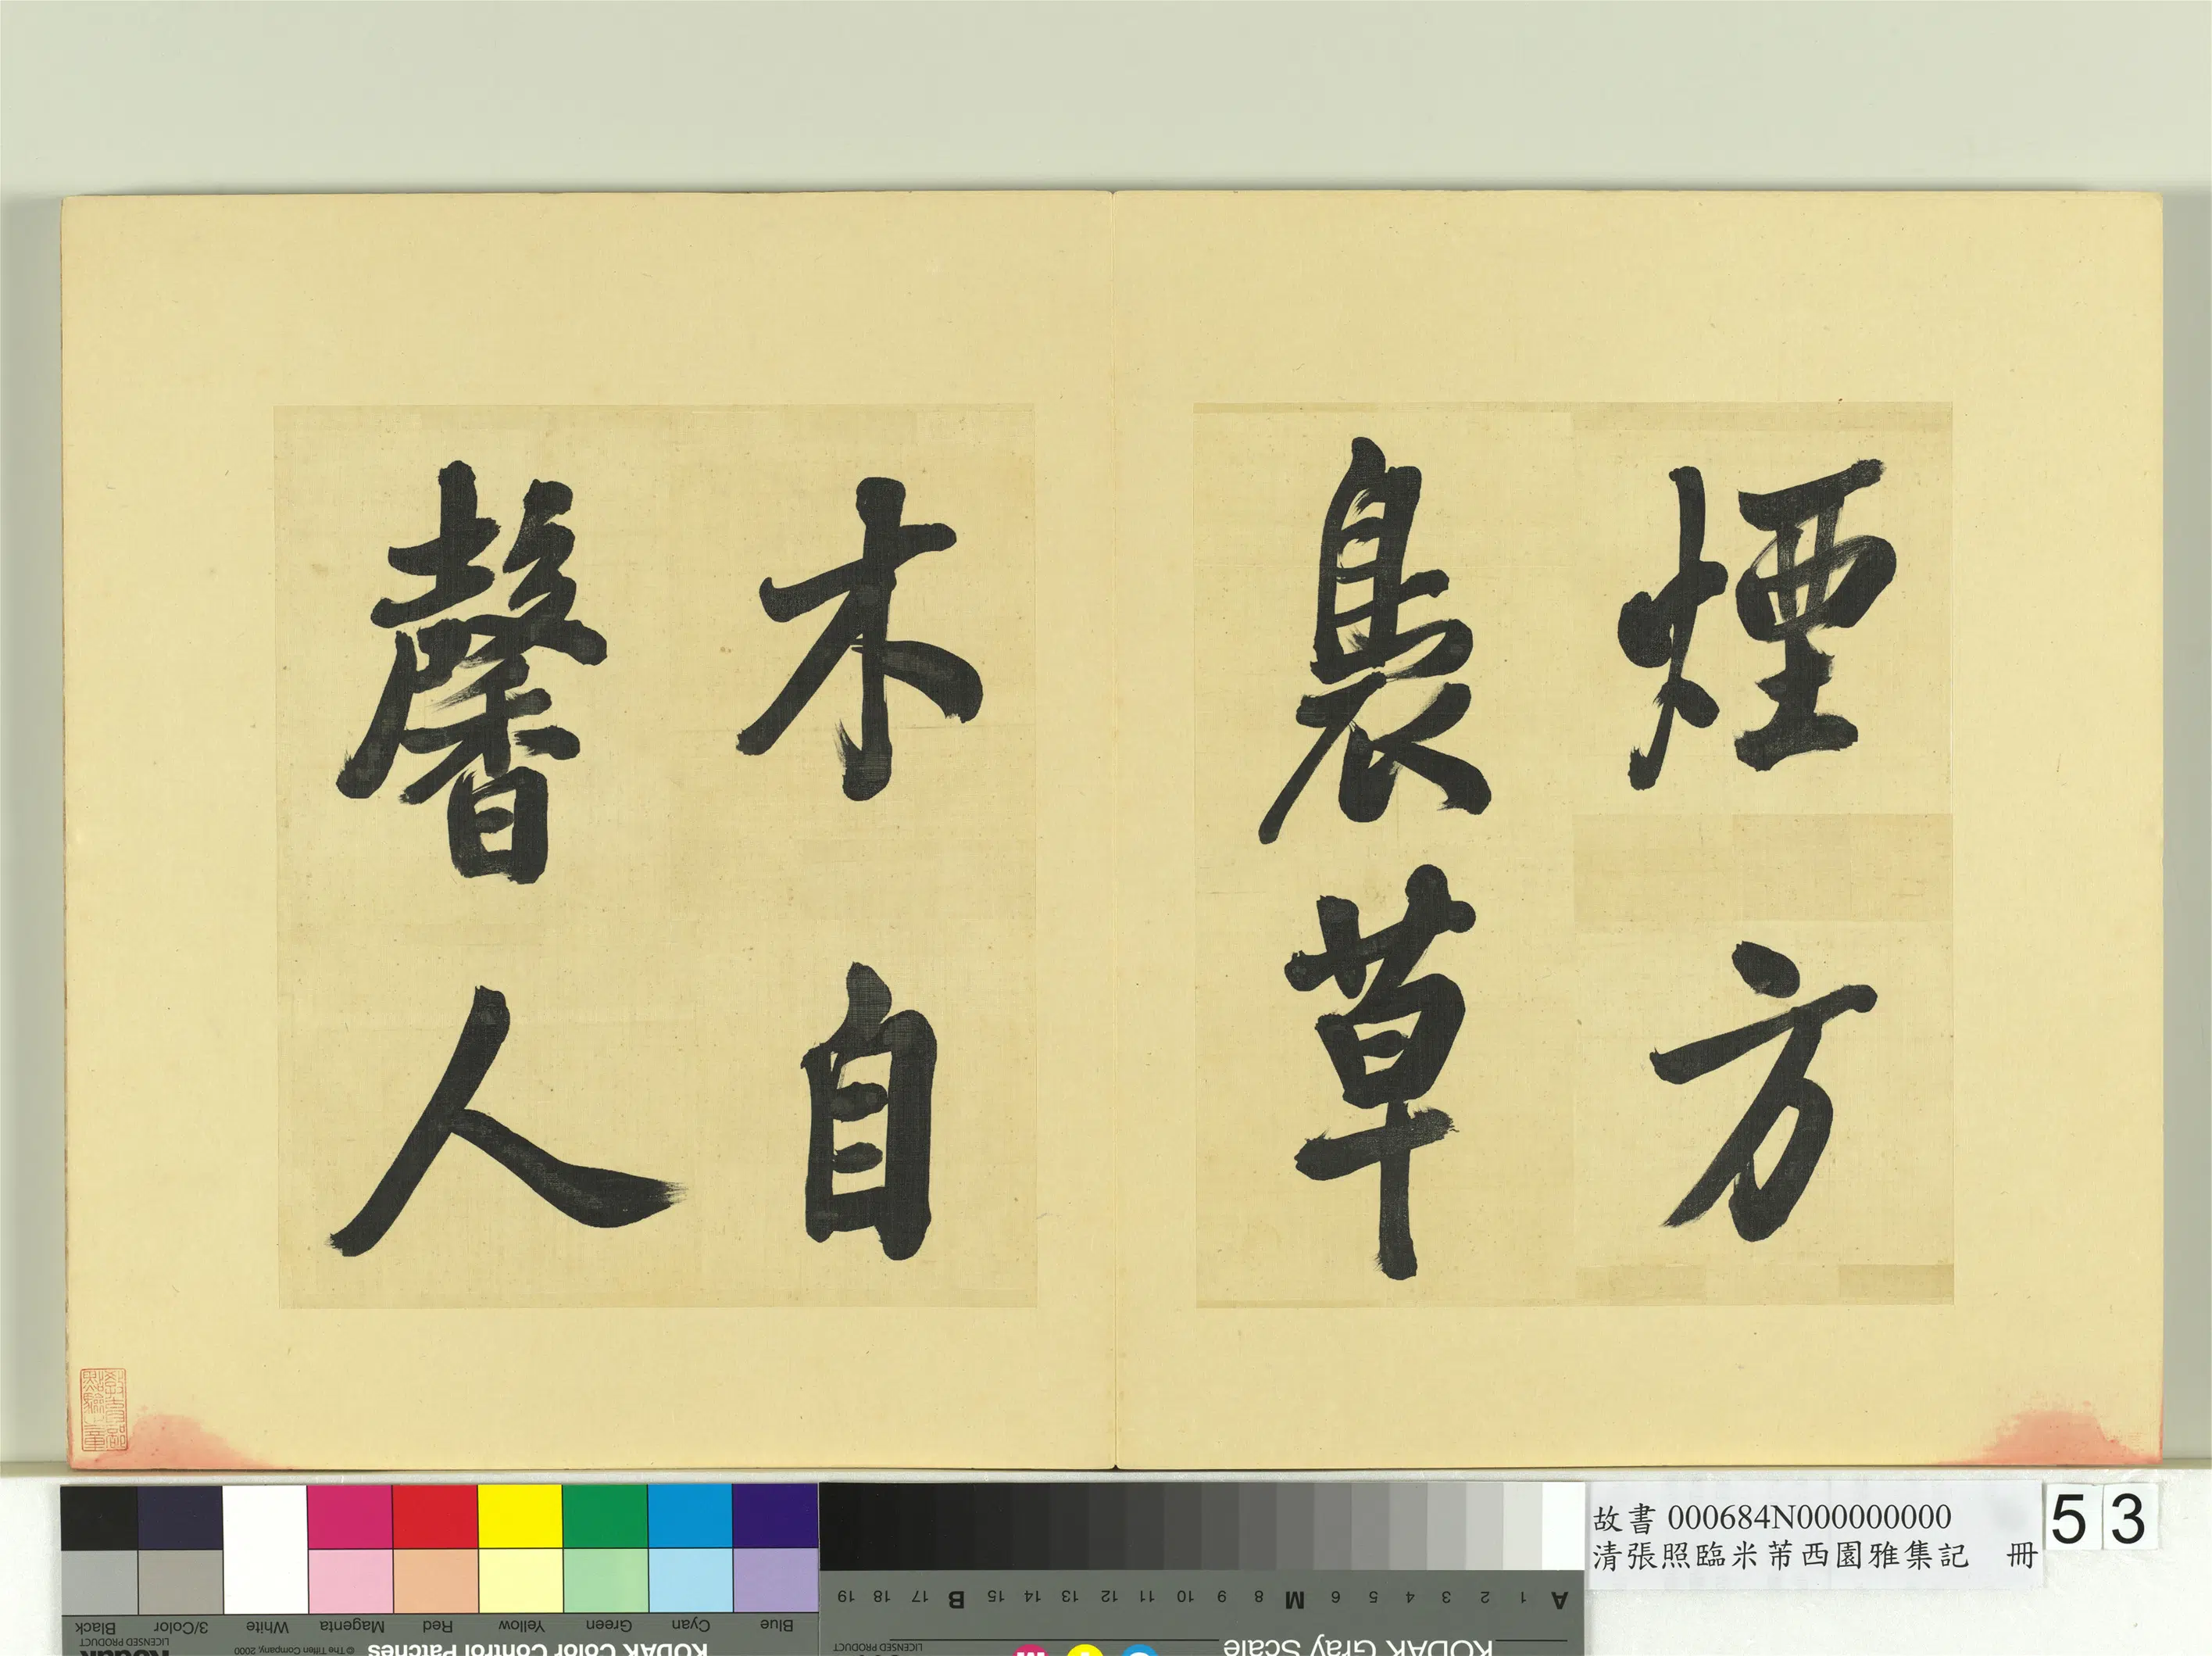 煙方
裊草
木自
馨人
故書 000684N000000000
清張照臨米芾西園雅集記 冊
53
Blue
Cyan
Green
Yellow
Red
Magenta
White
3/Color
Black
KODAK Color Control Patches
© The Tiffen Company, 2000
LICENSED PRODUCT
Kodak
KODAK Gray Scale
LICENSED PRODUCT
A 1 2 3 4 5 6 M 8 9 10 11 12 13 14 15 B 17 18 19